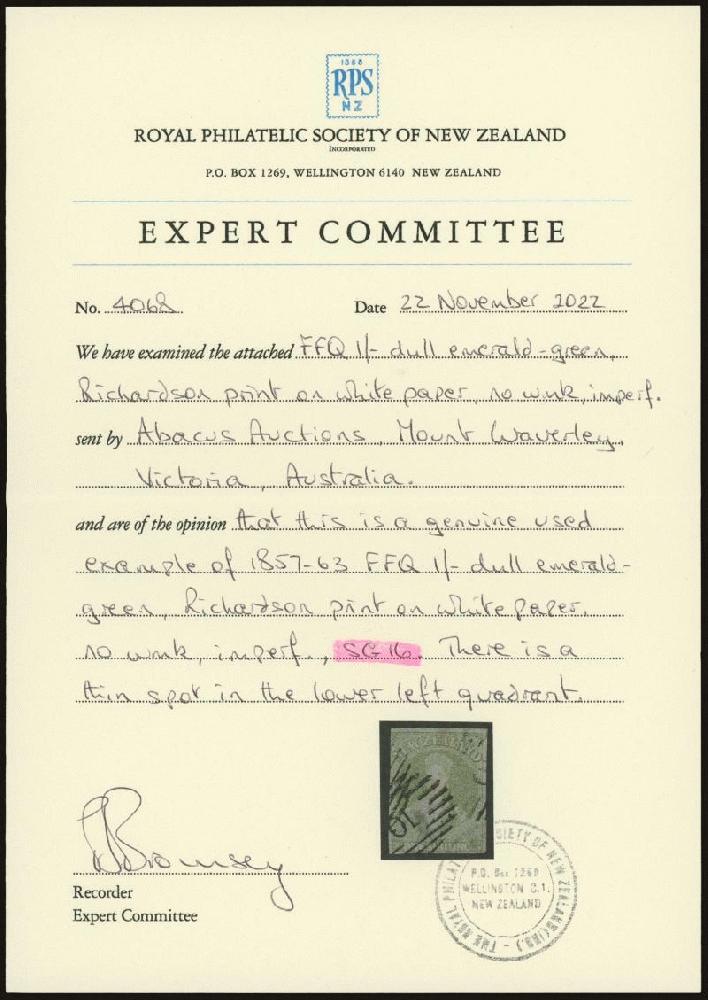 1888
RPS
NZ
ROYAL PHILATELIC SOCIETY OF NEW ZEALAND
INCORPORATED
P.O. BOX 1269, WELLINGTON 6140 NEW ZEALAND
EXPERT COMMITTEE
No. 4068 Date 22 November 2022
We have examined the attached FFQ 1/- dull emerald-green,
Richardson print on white paper, no wmk, imperf.
sent by Abacus Auctions, Mount Waverley,
Victoria, Australia.
and are of the opinion that this is a genuine used
example of 1857-63 FFQ 1/- dull emerald-
green, Richardson print on white paper,
no wmk, imperf., SG 16. There is a
thin spot in the lower left quadrant.
Bromsey
Recorder
Expert Committee
THE ROYAL PHILATELIC SOCIETY OF NEW ZEALAND (INC.)
P.O. Box 1269
WELLINGTON C.1.
NEW ZEALAND